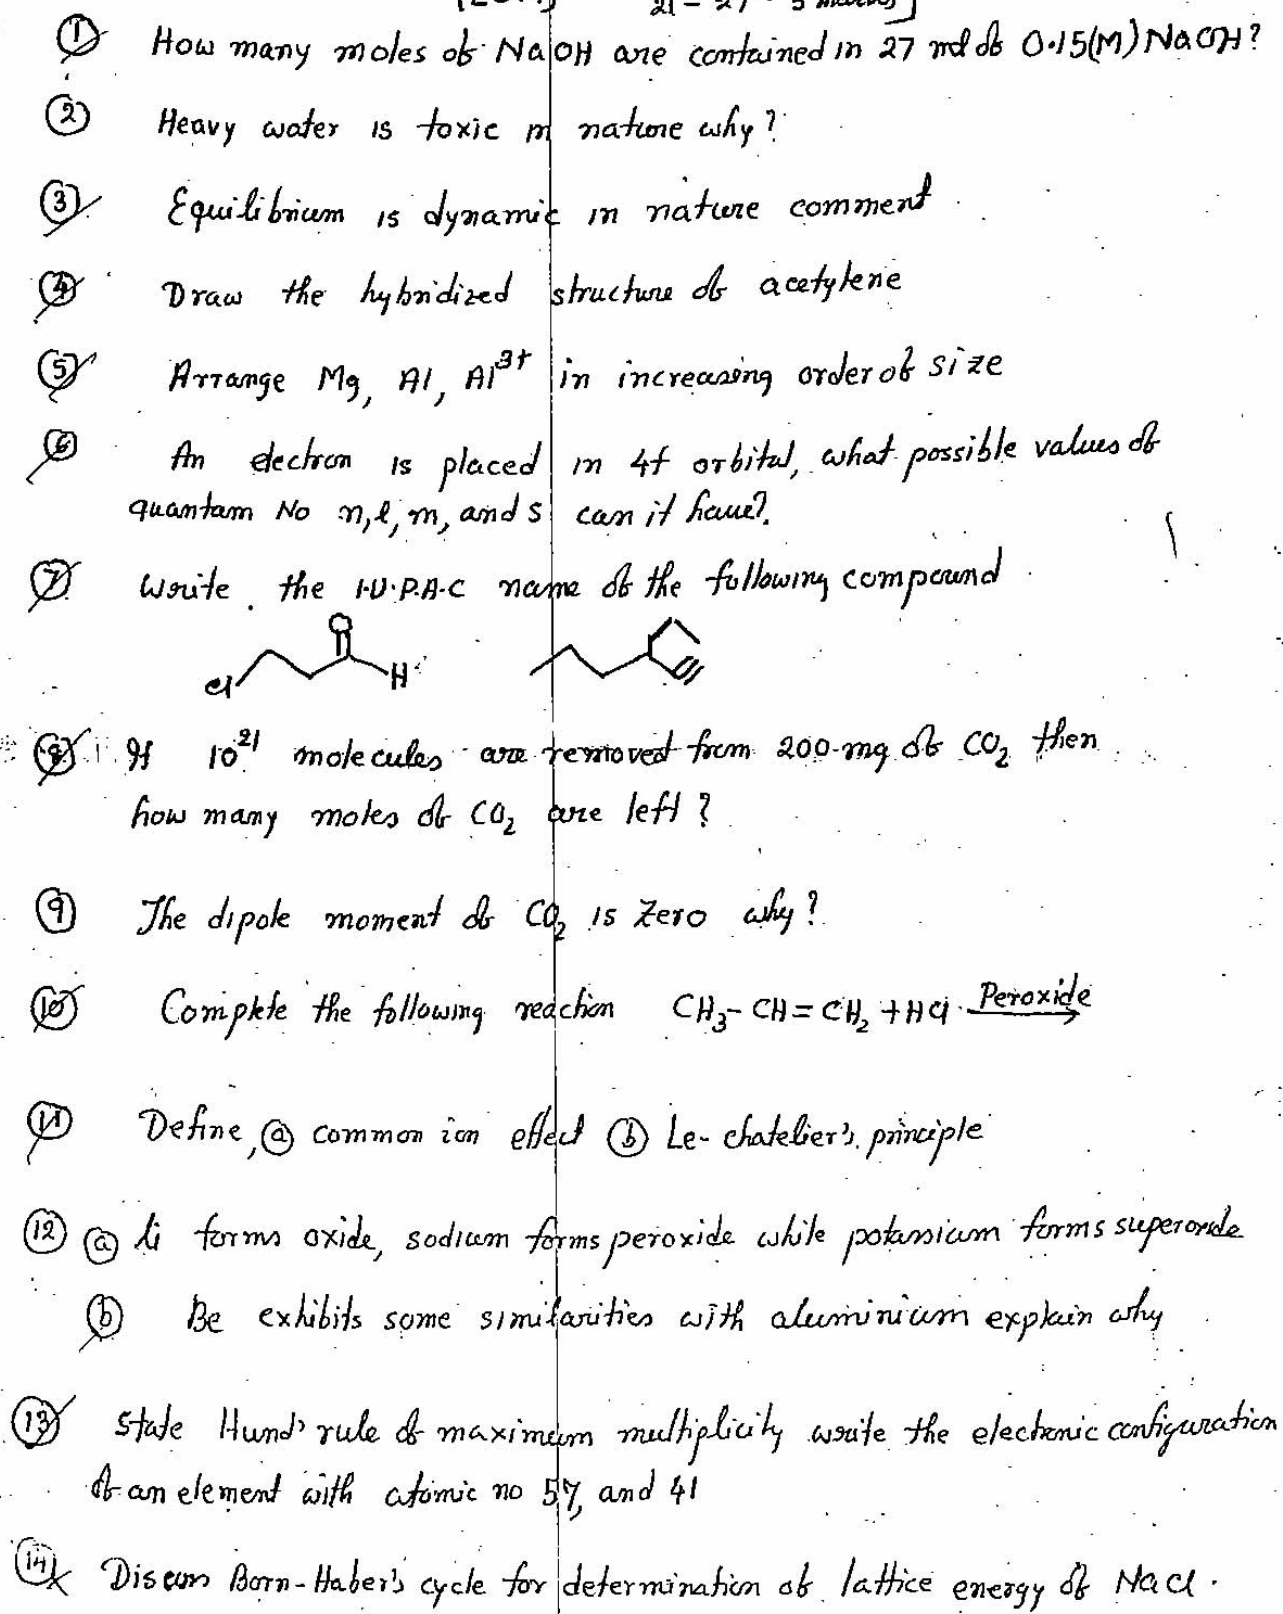 21 - 27 - 5 marks]
① How many moles of NaOH are contained in 27 ml of 0.15(M) NaOH?
② Heavy water is toxic in nature why?
③ Equilibrium is dynamic in nature comment
④ Draw the hybridized structure of acetylene
⑤ Arrange Mg, Al, Al³⁺ in increasing order of size
⑥ An electron is placed in 4f orbital, what possible values of
quantam No n, l, m, and s can it have?
⑦ Write the I.U.P.A.C name of the following compound
O
Cl H
⑧ If 10²¹ molecules are removed from 200-mg of CO₂ then
how many moles of CO₂ are left?
⑨ The dipole moment of CO₂ is zero why?
⑩ Complete the following reaction CH₃-CH=CH₂ + HCl Peroxide→
⑪ Define, ⓐ common ion effect ⓑ Le-chatelier's principle
⑫ ⓐ Li forms oxide, sodium forms peroxide while potassium forms superoxide
ⓑ Be exhibits some similarities with aluminium explain why
⑬ State Hund's rule of maximum multiplicity write the electronic configuration
of an element with atomic no 57, and 41
⑭ Discuss Born-Haber's cycle for determination of lattice energy of NaCl.